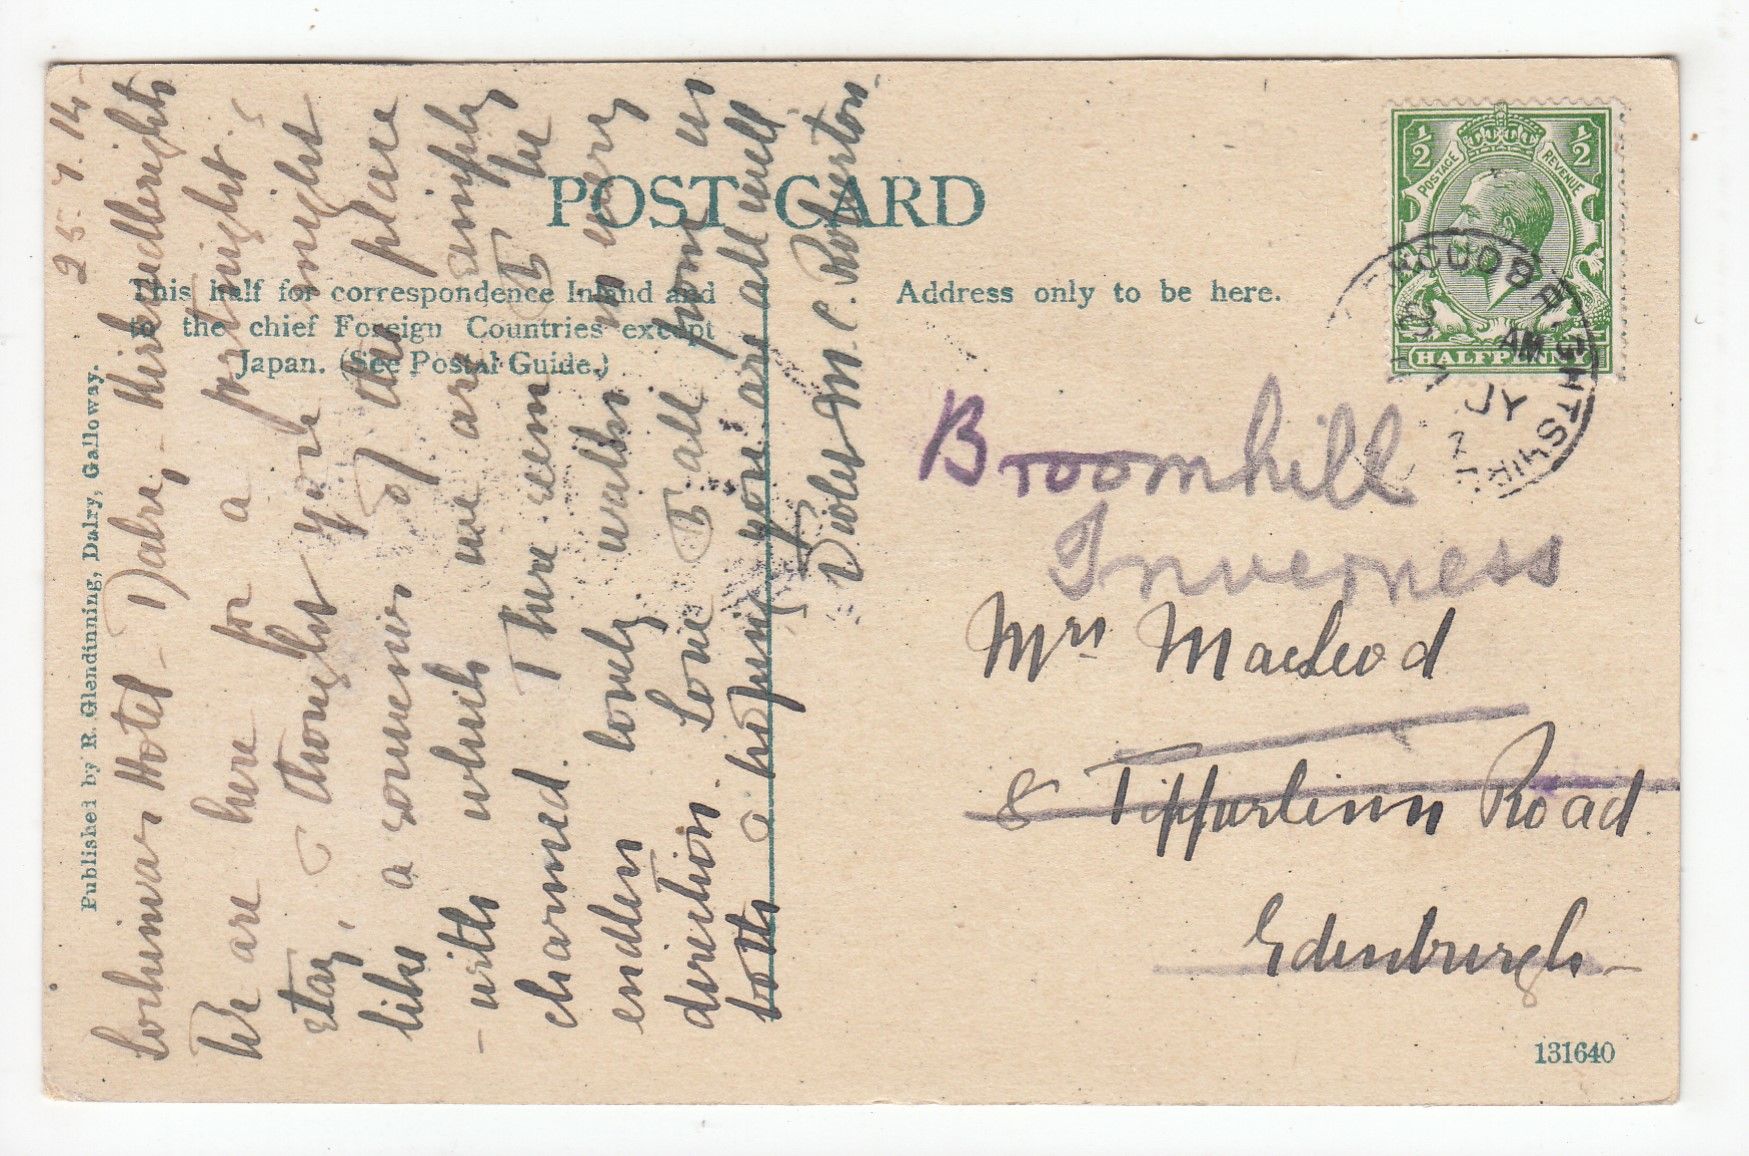 POST CARD
This half for correspondence Inland and
to the chief Foreign Countries except
Japan. (See Postal Guide.)
Address only to be here.
Published by R. Glendinning, Dalry, Galloway.
25.7.14
Lochinvar Hotel - Dalry - Kirkcudbright
We are here for a fortnight's
stay, & thought you might
like a souvenir of the place
- with which we are simply
charmed. There seem to be
endless lovely walks in every
direction. Love to all from us
both & hoping you are all well
Violet M. C. Roberton.
½ ½
POSTAGE REVENUE
HALFPENNY
KIRKCUDBRIGHTSHIRE
AM
JY
Broomhill
Inverness
Mrs MacLeod
8 Tipperlinn Road
Edinburgh
131640